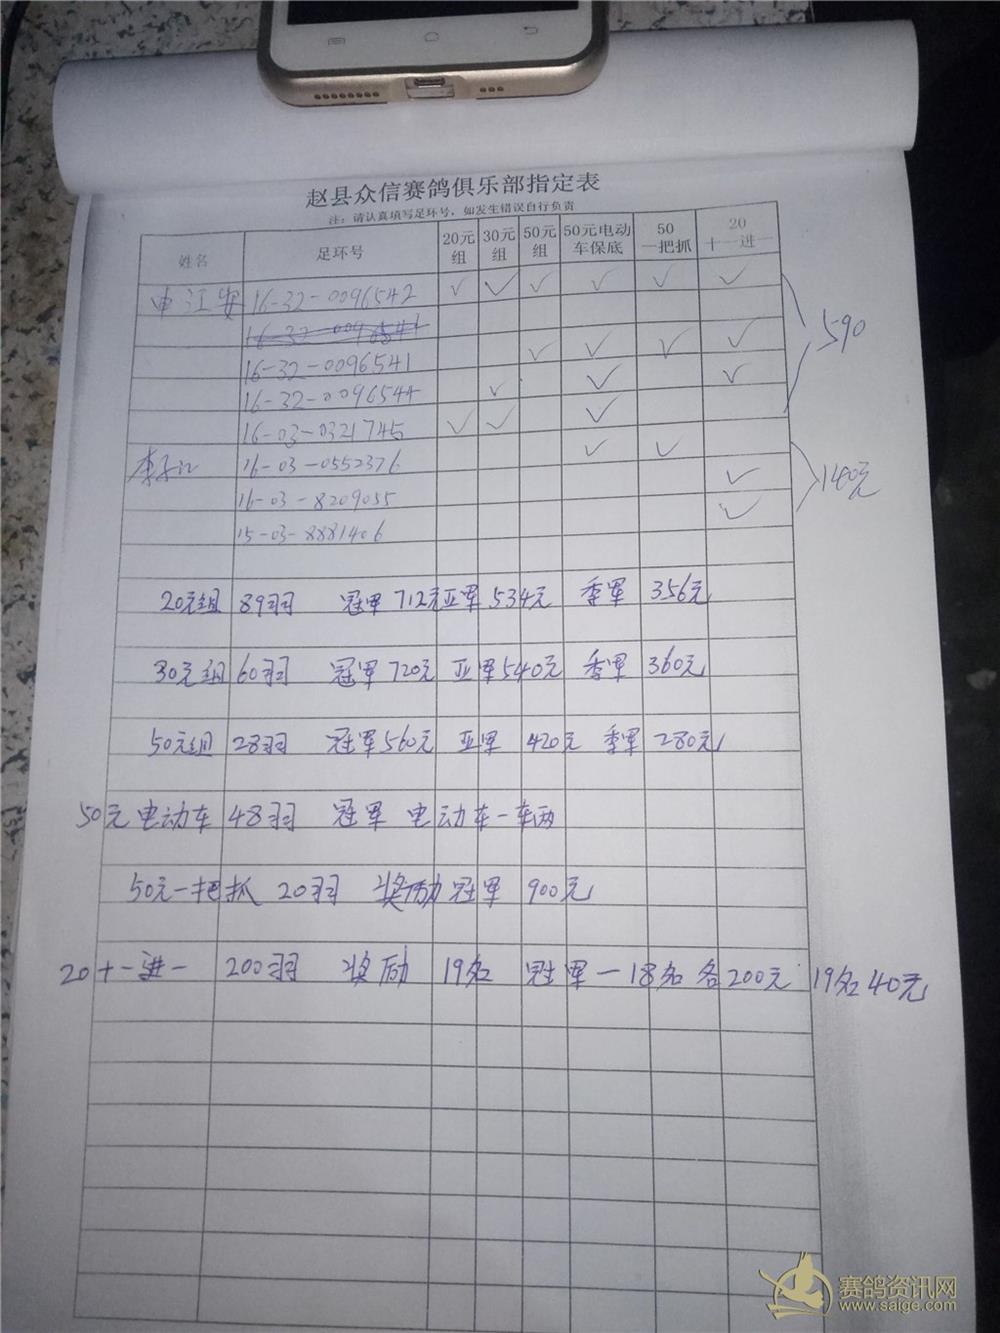 赵县众信赛鸽俱乐部指定表
注：请认真填写足环号，如发生错误自行负责
姓名 足环号 20元组 30元组 50元组 50元电动车保底 50一把抓 20十一进一
申江安 16-32-0096542 ✓ ✓ ✓ ✓ ✓ ✓
16-32-0096541
16-32-0096541 ✓ ✓ ✓ ✓
590
16-32-0096544 ✓ ✓ ✓
16-03-0321745 ✓ ✓ ✓
16-03-0552376 ✓ ✓
16-03-8209055 ✓
140元
15-03-8881406 ✓
20元组 89羽 冠军 712元 亚军 534元 季军 356元
30元组 60羽 冠军 720元 亚军 540元 季军 360元
50元组 28羽 冠军 560元 亚军 420元 季军 280元
50元电动车 48羽 冠军 电动车一车两
50元一把抓 20羽 奖励冠军 900元
20十一进一 200羽 奖励 19名 冠军一18名各200元 19名40元
赛鸽资讯网
www.saige.com